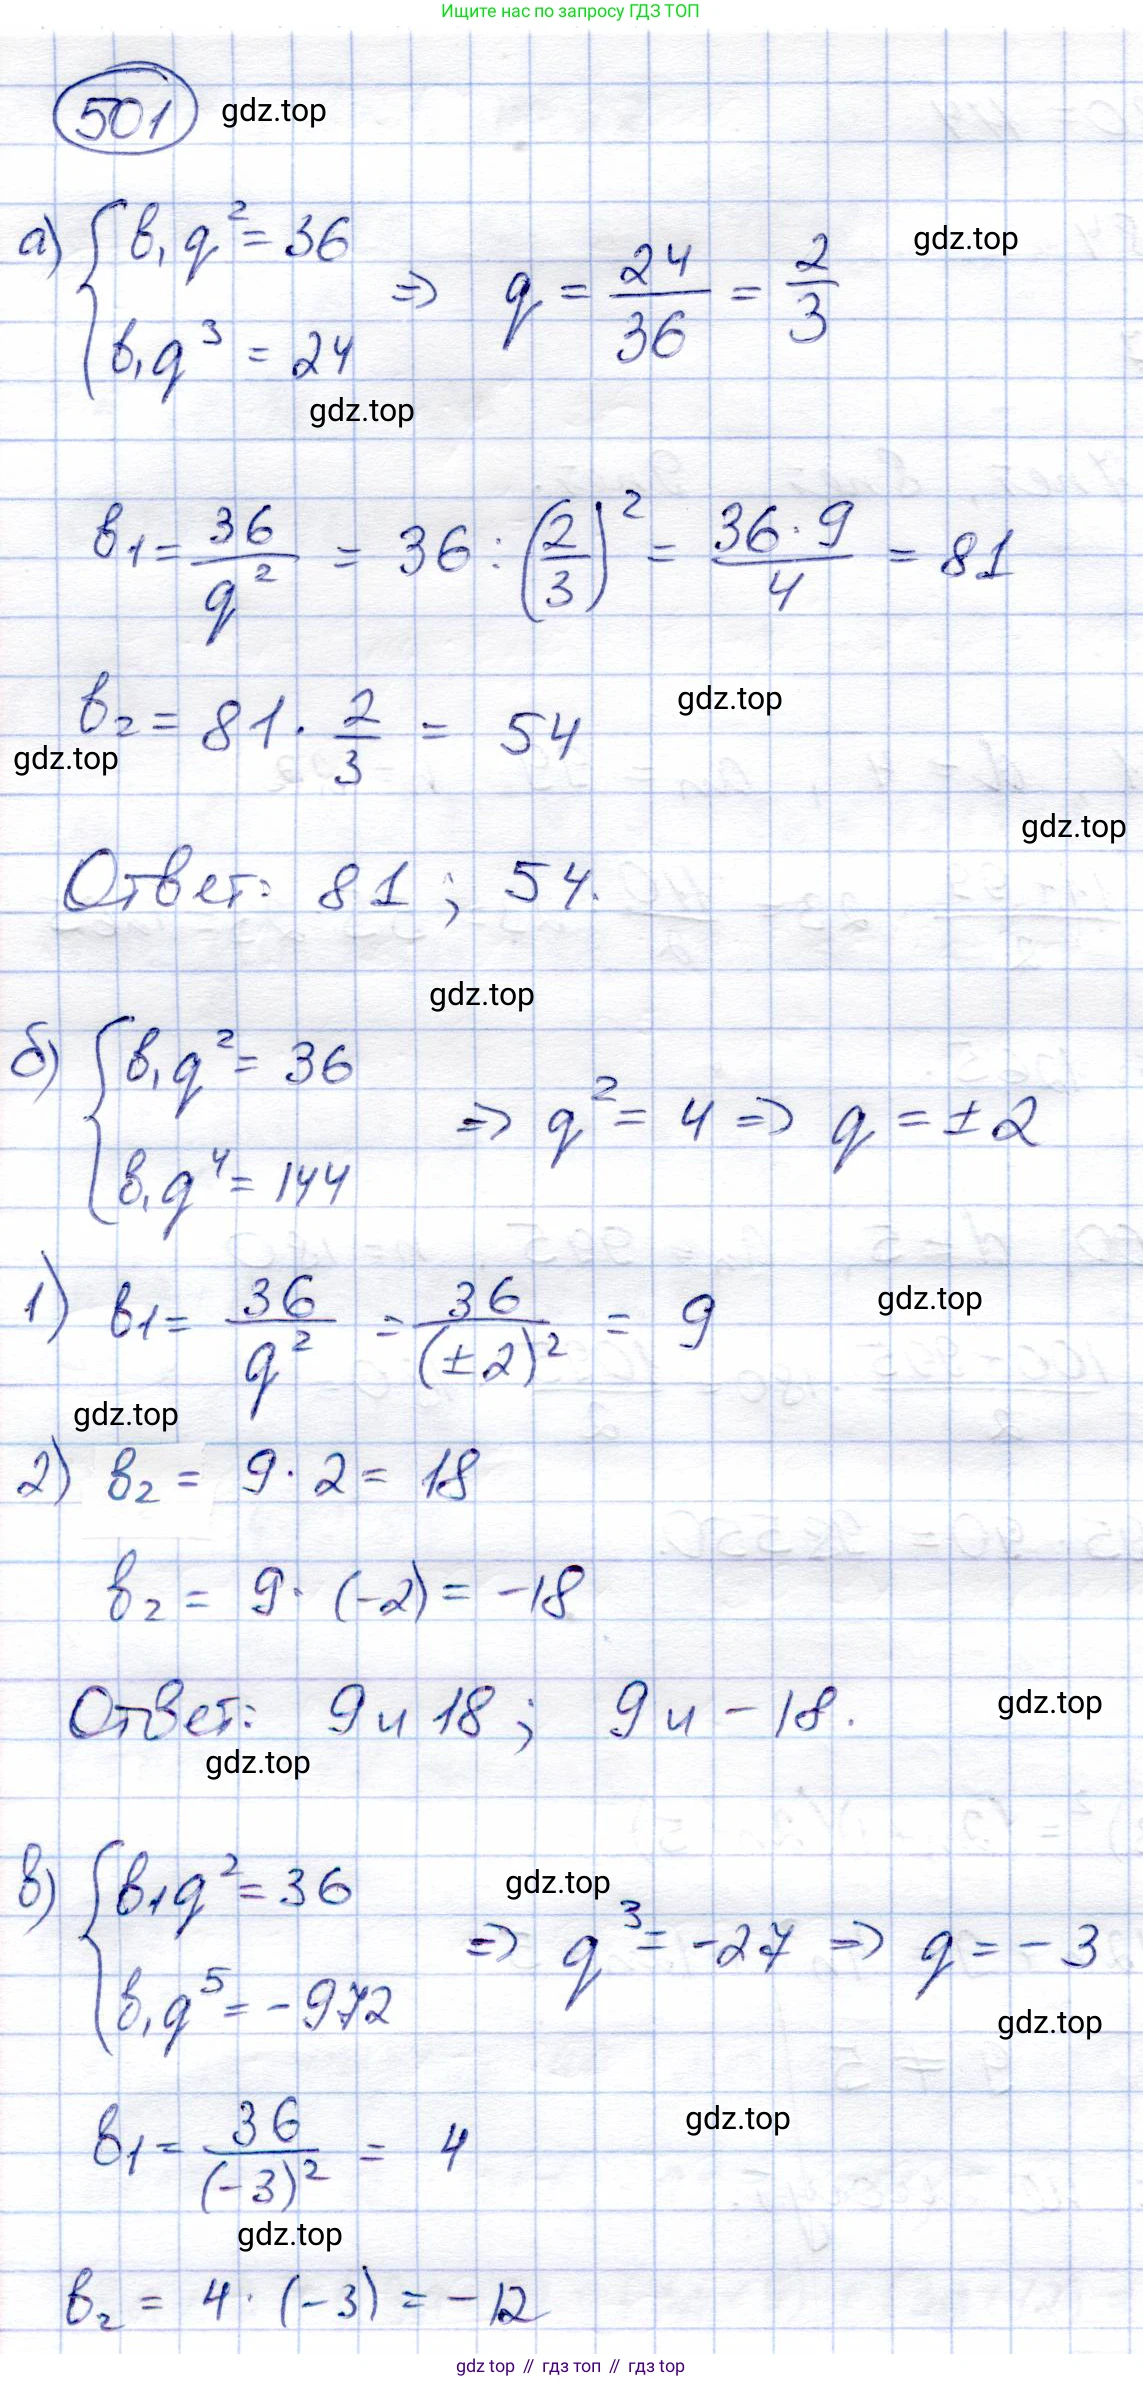 Ищите нас по запросу ГДЗ ТОП
501 gdz.top
а) { b₁q² = 36
b₁q³ = 24 => q = 24/36 = 2/3 gdz.top
gdz.top
b₁ = 36/q² = 36 : (2/3)² = 36·9/4 = 81
b₂ = 81 · 2/3 = 54 gdz.top
gdz.top
gdz.top
Ответ: 81; 54.
gdz.top
б) { b₁q² = 36
b₁q⁴ = 144 => q² = 4 => q = ±2
1) b₁ = 36/q² = 36/(±2)² = 9 gdz.top
gdz.top
2) b₂ = 9 · 2 = 18
b₂ = 9 · (-2) = -18
Ответ: 9 и 18; 9 и -18. gdz.top
gdz.top
в) { b₁q² = 36 gdz.top
b₁q⁵ = -972 => q³ = -27 => q = -3
gdz.top
b₁ = 36/(-3)² = 4 gdz.top
gdz.top
b₂ = 4 · (-3) = -12
gdz.top // гдз топ // гдз top